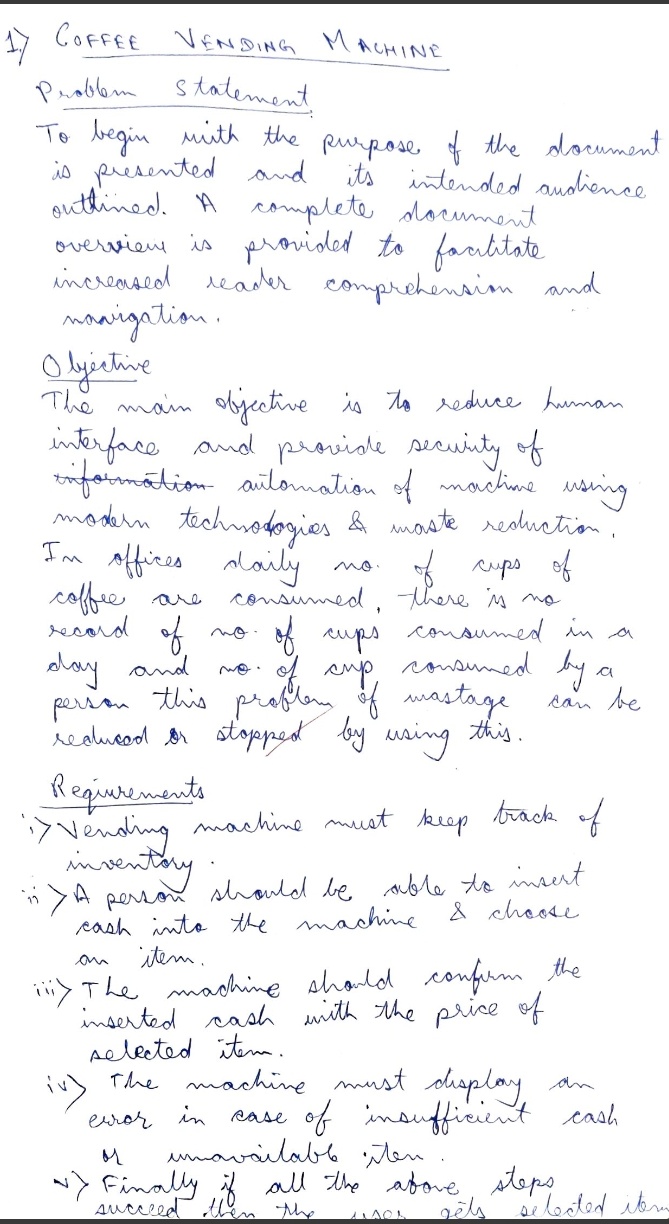 1) COFFEE VENDING MACHINE
Problem Statement
To begin with the purpose of the document
is presented and its intended audience
outlined. A complete document
overview is provided to facilitate
increased reader comprehension and
navigation.
Objective
The main objective is to reduce human
interface and provide security of
information automation of machine using
modern technologies & waste reduction.
In offices daily no. of cups of
coffee are consumed, there is no
record of no. of cups consumed in a
day and no. of cup consumed by a
person this problem of wastage can be
reduced or stopped by using this.
Requirements
i) Vending machine must keep track of
inventory.
ii) A person should be able to insert
cash into the machine & choose
an item.
iii) The machine should confirm the
inserted cash with the price of
selected item.
iv) The machine must display an
error in case of insufficient cash
or unavailable item.
v) Finally if all the above steps
succeed then the user gets selected item